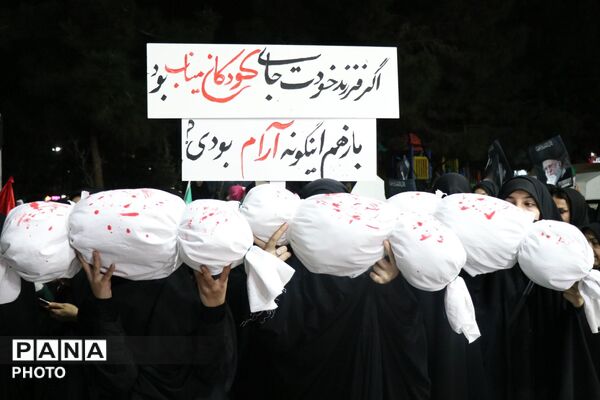 اگر فرزند خودت جای کودکان میناب بود
باز هم اینگونه آرام بودی؟
PANA
PHOTO